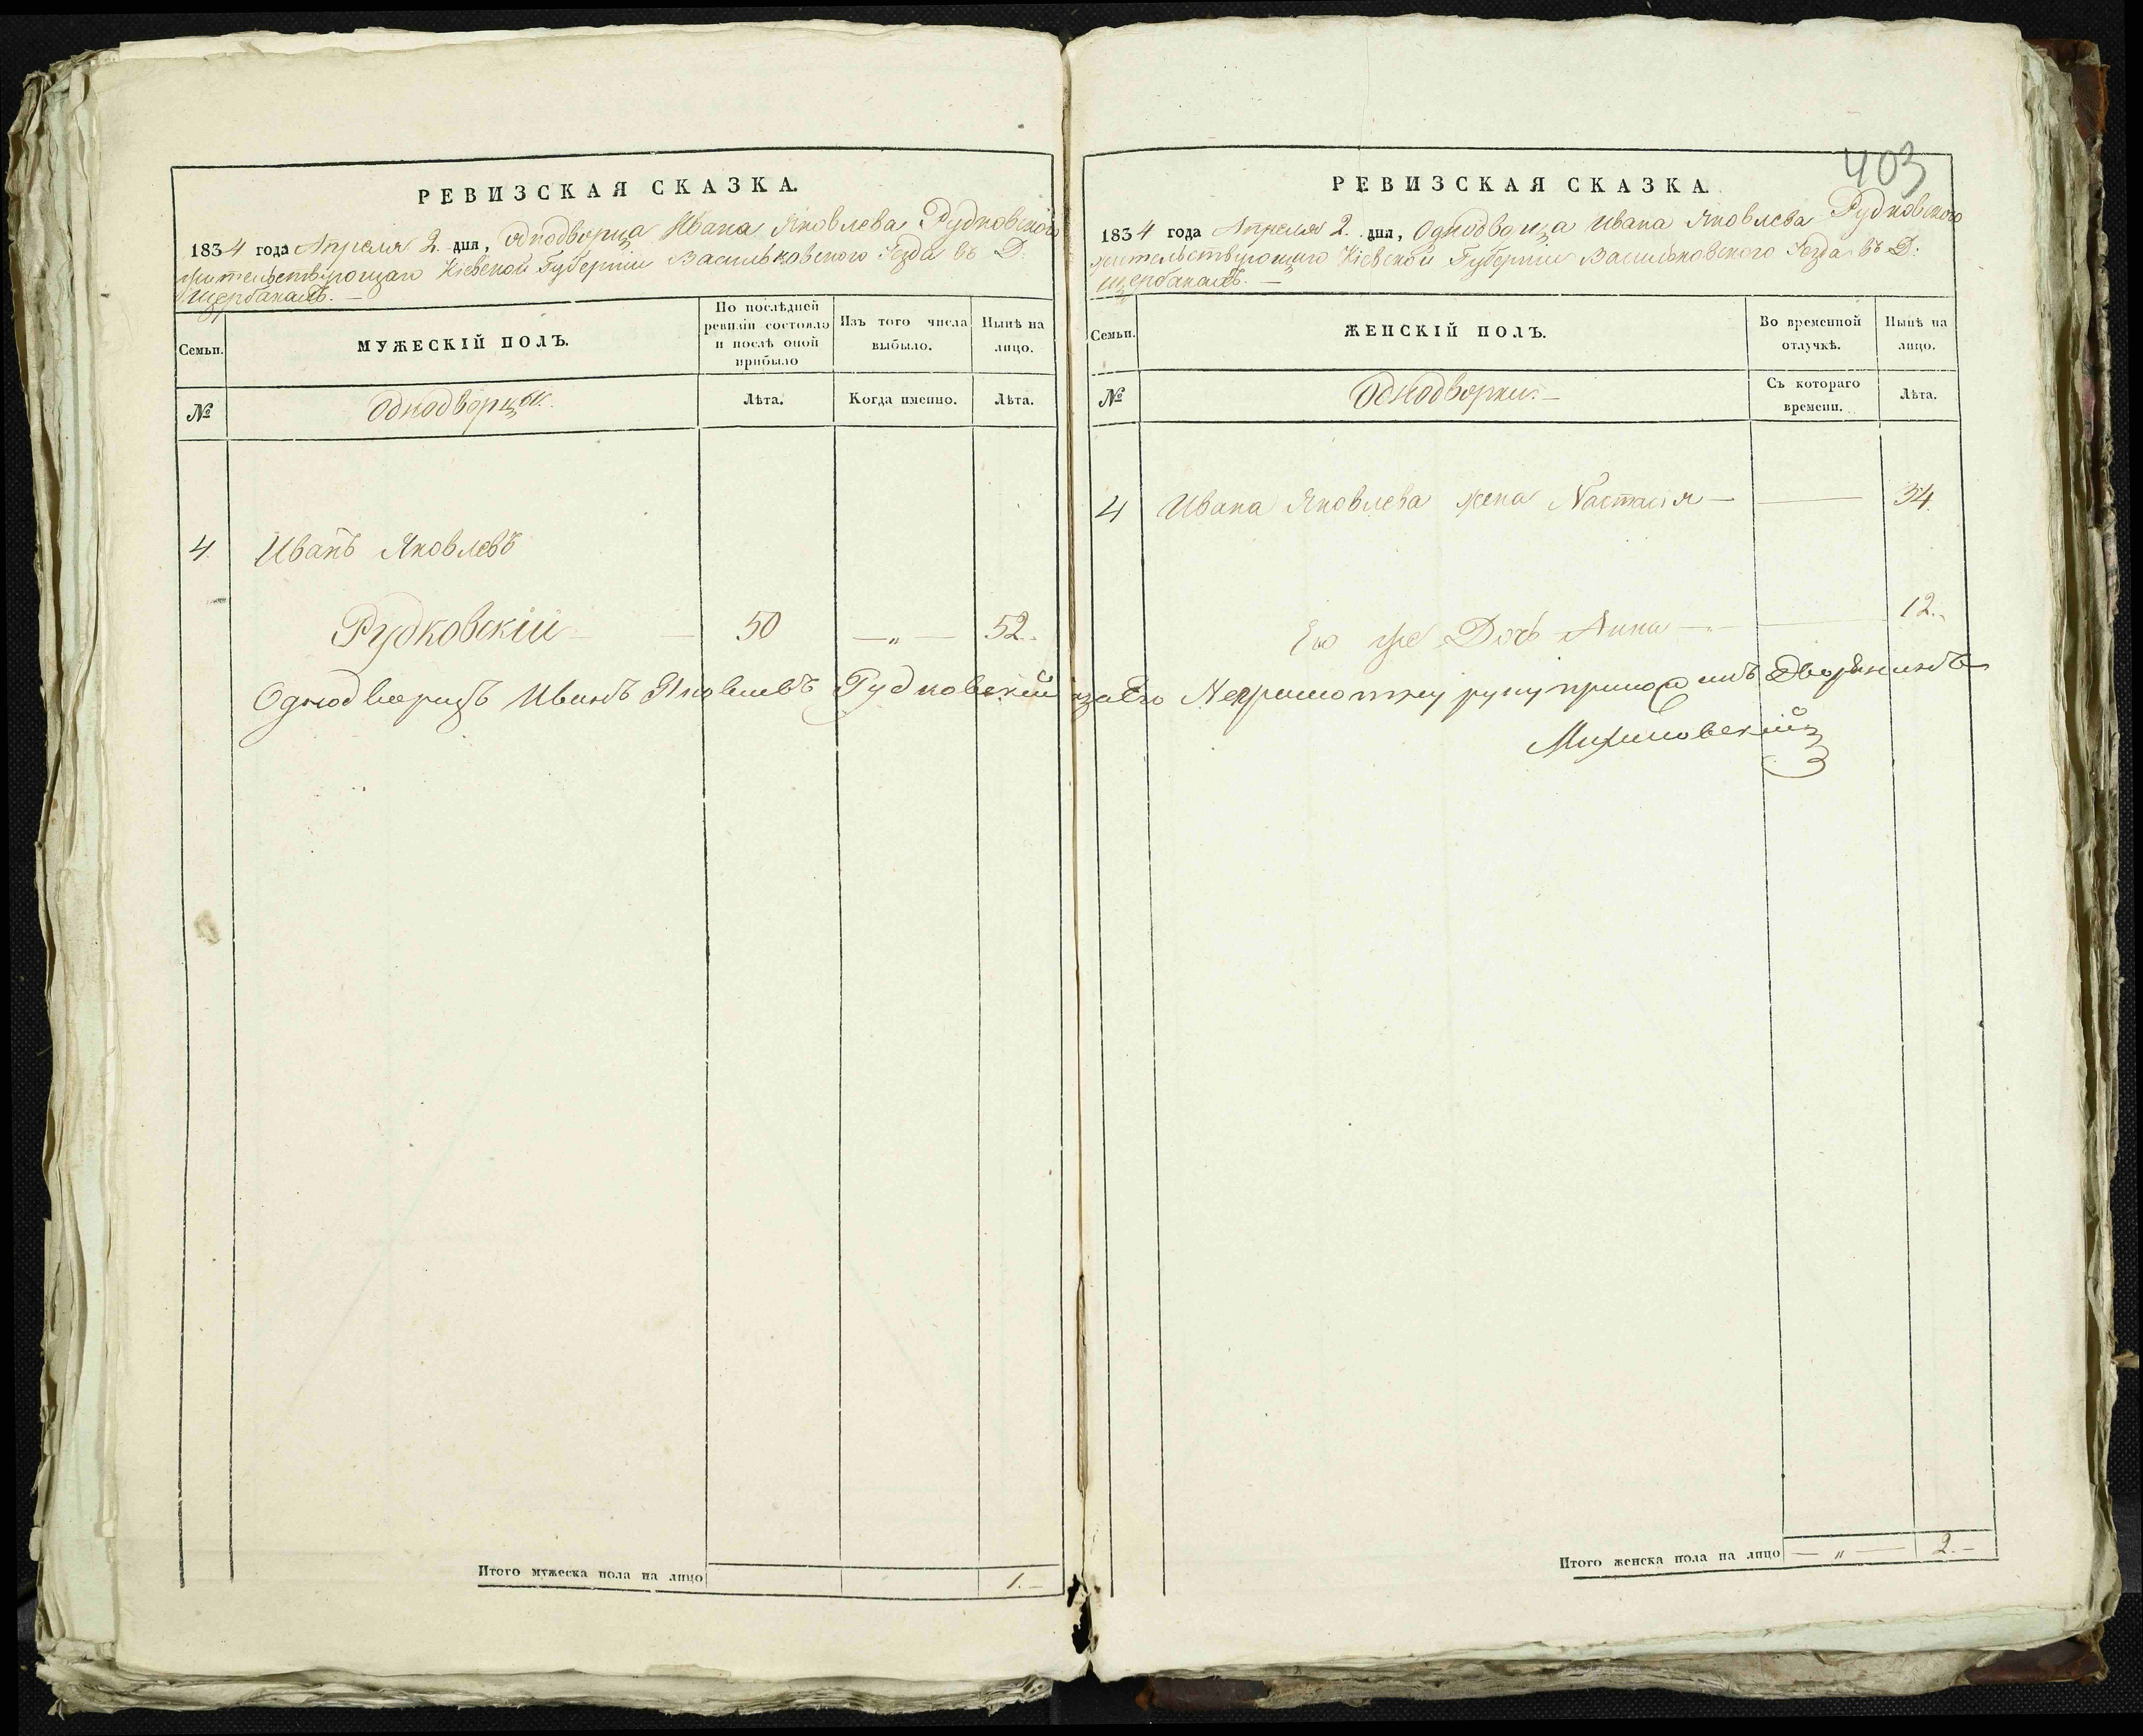 РЕВИЗСКАЯ СКАЗКА.
1834 года Апреля 2 дня, однодворца Ивана Яковлева Рудковского
жительствующаго Кіевской Губерніи Васильковского уезда въ Д.
Щербакахъ. —
Семьи.
МУЖЕСКІЙ ПОЛЪ.
По послѣдней ревизіи состояло и послѣ оной прибыло
Изъ того числа выбыло.
Нынѣ на лицо.
№
Однодворцы.
Лѣта.
Когда именно.
Лѣта.
4. Иванъ Яковлевъ
Рудковскій — 50 — „ — 52.
Однодворецъ Иванъ Яковлевъ Рудковскій
Итого мужеска пола на лицо 1. —
403
РЕВИЗСКАЯ СКАЗКА.
1834 года Апреля 2. дня, Однодворца Ивана Яковлева Рудковского
жительствующаго Кіевской Губерніи Васильковского уезда въ Д.
Щербакахъ. —
Семьи.
ЖЕНСКІЙ ПОЛЪ.
Во временной отлучкѣ.
Нынѣ на лицо.
№
Однодворки. —
Съ котораго времени.
Лѣта.
4 Ивана Яковлева жена Настасія — — 34.
Ею же Дочь Анна — „ — 12.
за его Неграмотну руку приложилъ Дворянинъ
Итого женска пола на лицо — „ — 2. —